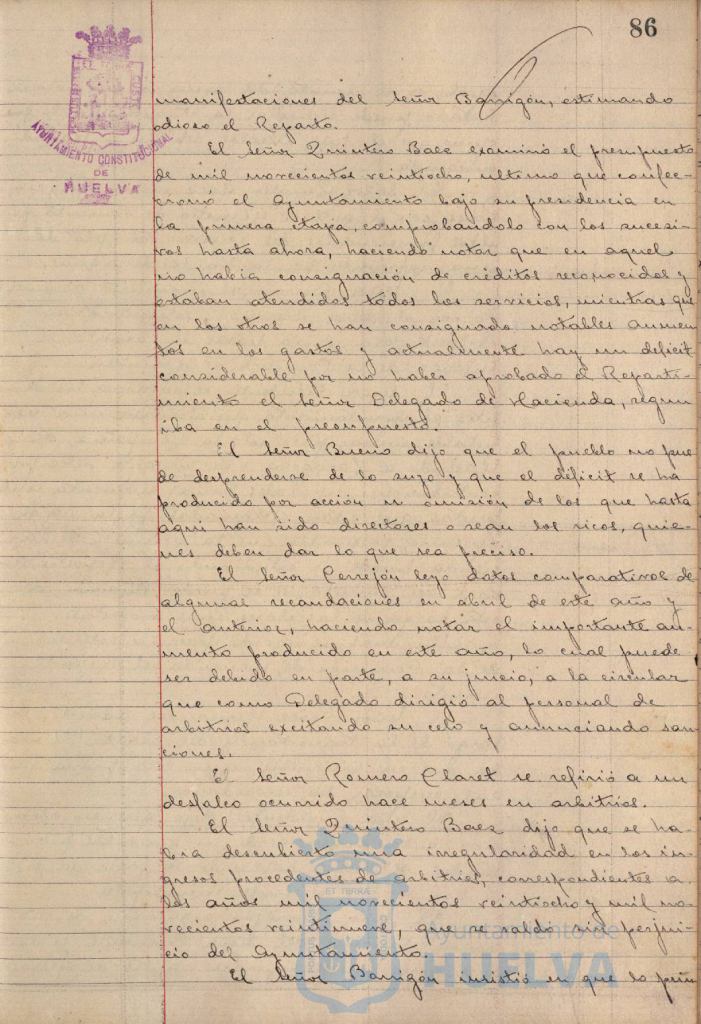 86
AYUNTAMIENTO CONSTITUCIONAL
DE
HUELVA
manifestaciones del Señor Barrigón, estimando
odioso el Reparto.
El Señor Quintero Baez examinó el presupuesto
de mil novecientos veintiocho, ultimo que confec-
cionó el Ayuntamiento bajo su presidencia en
la primera etapa, comprobandolo con los sucesi-
vos hasta ahora, haciendo notar que en aquel
no habia consignación de créditos reconocidos y
estaban atendidos todos los servicios, mientras que
en los otros se han consignado notables aumen-
tos en los gastos y actualmente hay un deficit
considerable por no haber aprobado el Reparti-
miento el Señor Delegado de Hacienda, segun
iba en el presupuesto.
El Señor Bueno dijo que el pueblo no pue
de desprenderse de lo suyo y que el déficit se ha
producido por acción u omisión de los que hasta
aqui han sido directores o sean los ricos, quie-
nes deben dar lo que sea preciso.
El Señor Cerrejón leyo datos comparativos de
algunas recaudaciones en abril de este año y
el anterior, haciendo notar el importante au-
mento producido en este año, lo cual puede
ser debido en parte, a su juicio, a la circular
que como Delegado dirigió al personal de
arbitrios excitando su celo y anunciando san
ciones.
El Señor Romero Claret se refirió a un
desfalco ocurrido hace meses en arbitrios.
El Señor Quintero Baez dijo que se ha-
bia descubierto una irregularidad en los in-
gresos procedentes de arbitrios, correspondientes a
los años mil novecientos veintiocho y mil no-
vecientos veintinueve, que se saldó sin perjui-
cio del Ayuntamiento.
El Señor Barrigón insistió en que lo
Ayuntamiento de
HUELVA